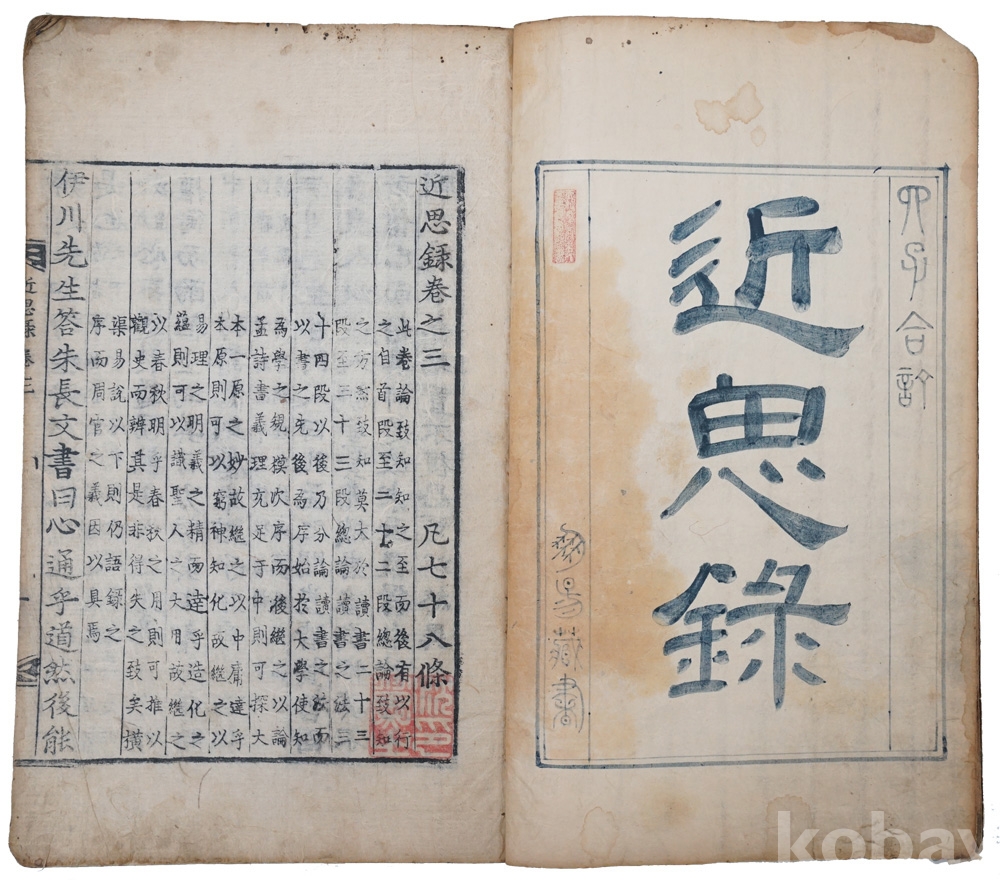 四子合訂
近思錄
藏書
近思録卷之三 凡七十八條
此卷論致知知之至而後有以行
之自首段至二十二段總論致知
之方然致知莫大於讀書二十三
段至三十三段總論讀書之法三
十四段以後乃分論讀書之法而
以書之先後為序始於大學使知
為學之規模次序而後繼之以論
孟詩書義理充足于中則可探大
本一原之妙故継之以中庸達乎
本原則可以窮神知化故継之以
易理之明義之精而達乎造化之
蘊則可以識聖人之大用故継之
以春秋明乎春秋之用則可推以
觀史而辨其是非得失之致矣橫
渠易說以下則仍語録之
序而周官之義因以具焉
伊川先生答朱長文書曰心通乎道然後能
近思录卷三
kobay